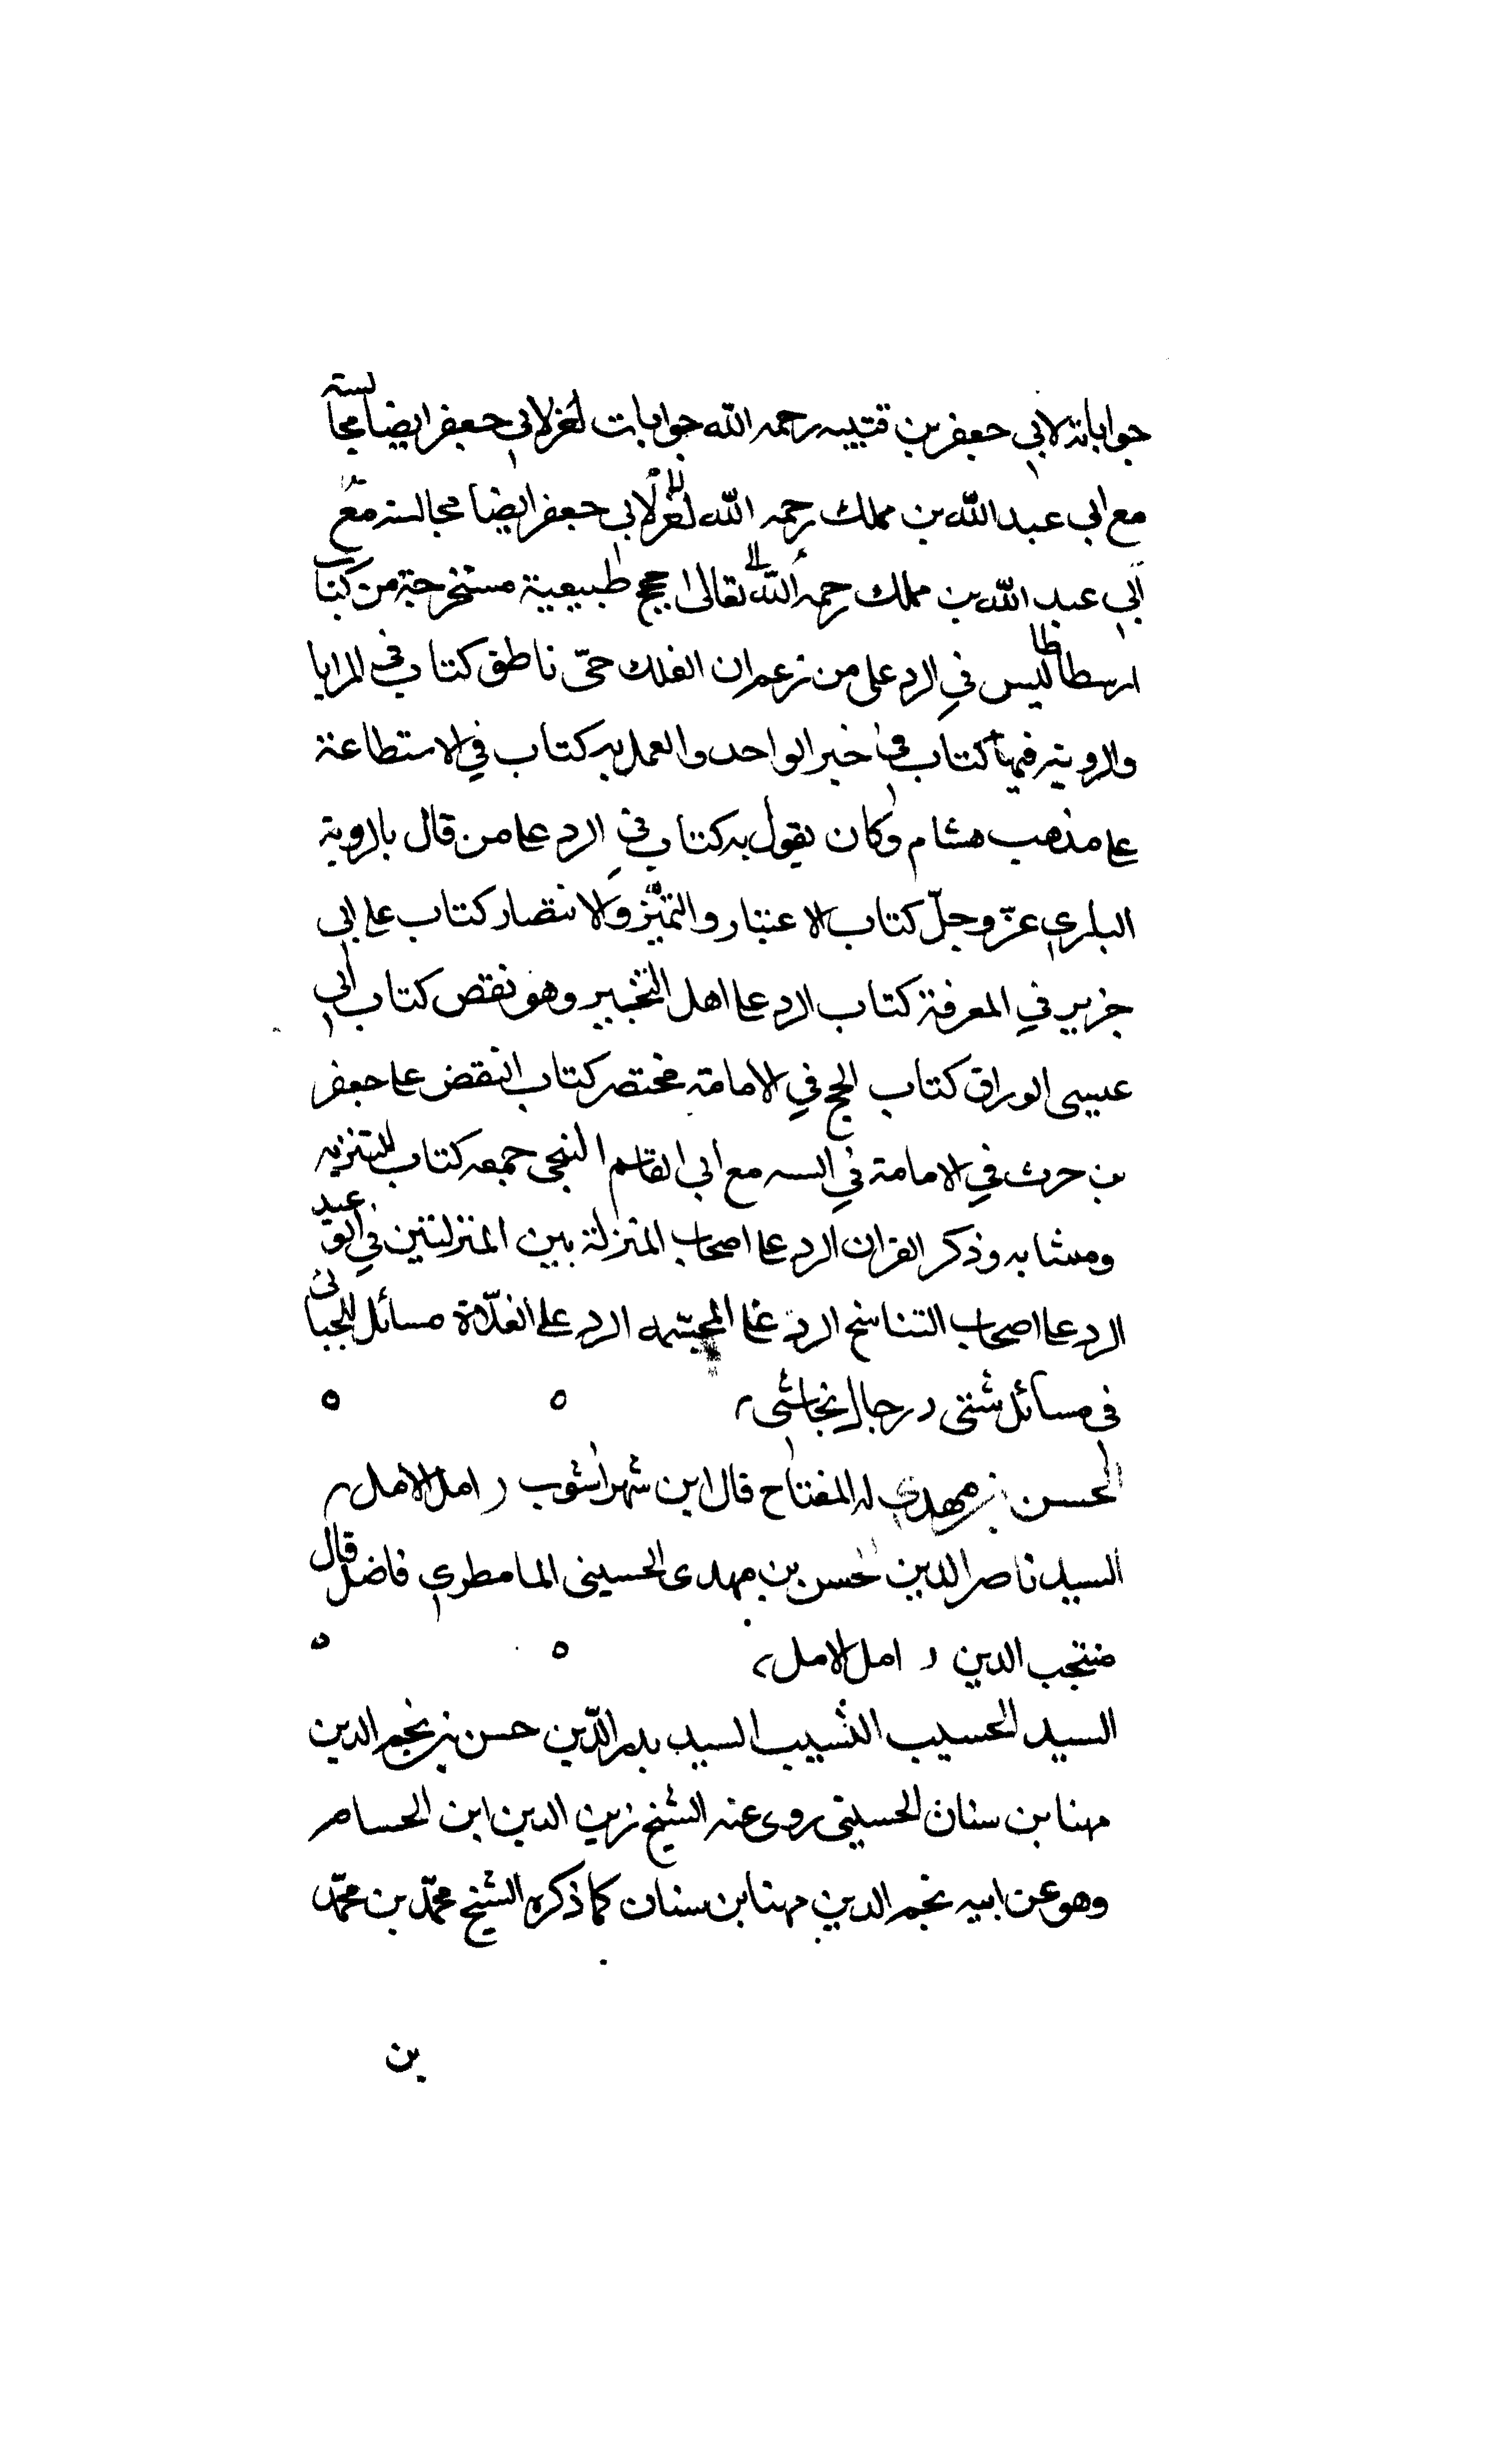 جواباته لابي جعفر بن قتيبه رحمه الله جوابات لغز لابي جعفر ايضا مجالسته
مع ابي عبد الله بن مملك رحمه الله لغز لابي جعفر ايضا مجالسته مع
ابي عبد الله بن مملك رحمه الله تعالى حجج طبيعية مستخرجة من كتاب
ارسطاطاليس في الرد على من زعم ان الفلك حيّ ناطق كتاب في المرايا
والروية فيها كتاب في خبر الواحد والعمل به كتاب في الاستطاعة
على مذهب هشام وكان يقول به كتاب في الرد على من قال بالروية
الباري عزّ وجلّ كتاب الاعتبار والتميّز والانتصار كتاب على ابي
جزير في المعرفة كتاب الرد على اهل التخبير وهو نقص كتاب ابي
عيسى الوراق كتاب الحجج في الامامة مختصر كتاب النقض على جعفر
بن حرث في الامامة في السه مع ابي القاسم البخي جمعه كتاب للتنزيه
ومشابه وذكر القران الرد على اصحاب المنزلة بين المنزلتين في الوعيد
الرد على اصحاب التناسخ الرد على المجسّمه الرد على الغلاة مسائل للجبائى
في مسائل شتى ر رجال نجاشى
الحسن بن مهدي له المفتاح قال ابن شهراشوب ر امل الامل
السيد ناصر الدين الحسن بن مهدى الحسينى المامطري فاضل قال
منتجب الدين ر امل الامل
السيد الحسيب النسيب السيد بدر الدّين حسن بن نجم الدين
مهنا بن سنان الحسينى روى عنه الشيخ زين الدين ابن الحسام
وهو عن ابيه نجم الدين مهنا بن سنان كما ذكره الشيخ محمّد بن محمّد
بن